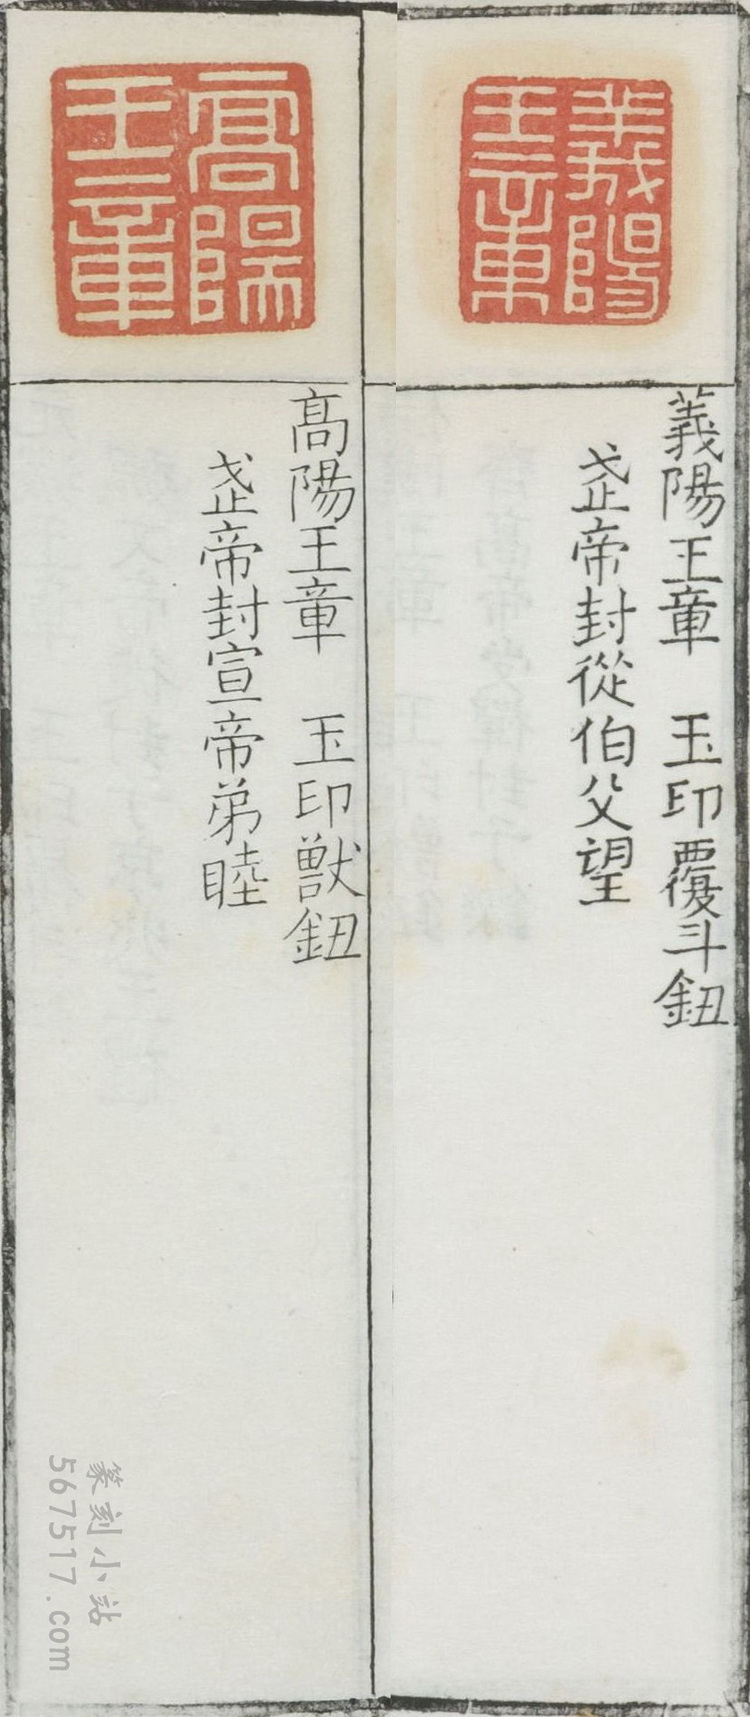 義陽王章
義陽王章　玉印覆斗鈕
武帝封從伯父望
高陽王章
高陽王章　玉印獸鈕
武帝封宣帝弟睦
篆刻小站
567517.com